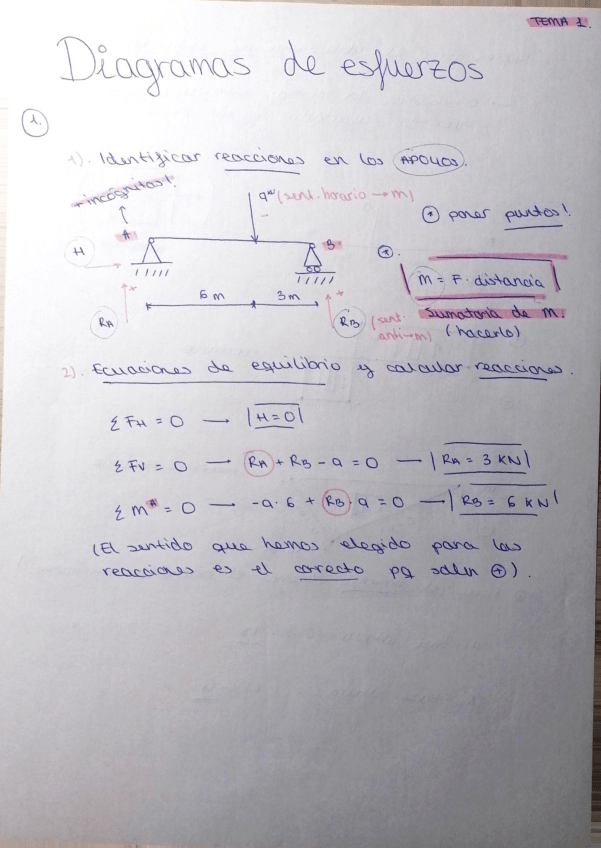 TEMA 1.
Diagramas de esfuerzos
1.
1). Identificar reacciones en los APOYOS.
+ incógnitas!
9 (sent. horario → m)
* poner puntos!
A
B
H
*.
m = F. distancia
6 m
3 m
RA
RB
(sent. anti → m)
Sumatoria de m.
(hacerlo)
2). Ecuaciones de equilibrio y calcular reacciones.
Σ FH = 0 → H = 0
Σ FV = 0 → RA + RB - 9 = 0 → RA = 3 KN
Σ mA = 0 → -9. 6 + RB. 9 = 0 → RB = 6 KN
(El sentido que hemos elegido para las
reacciones es el correcto pq salen ⊕).